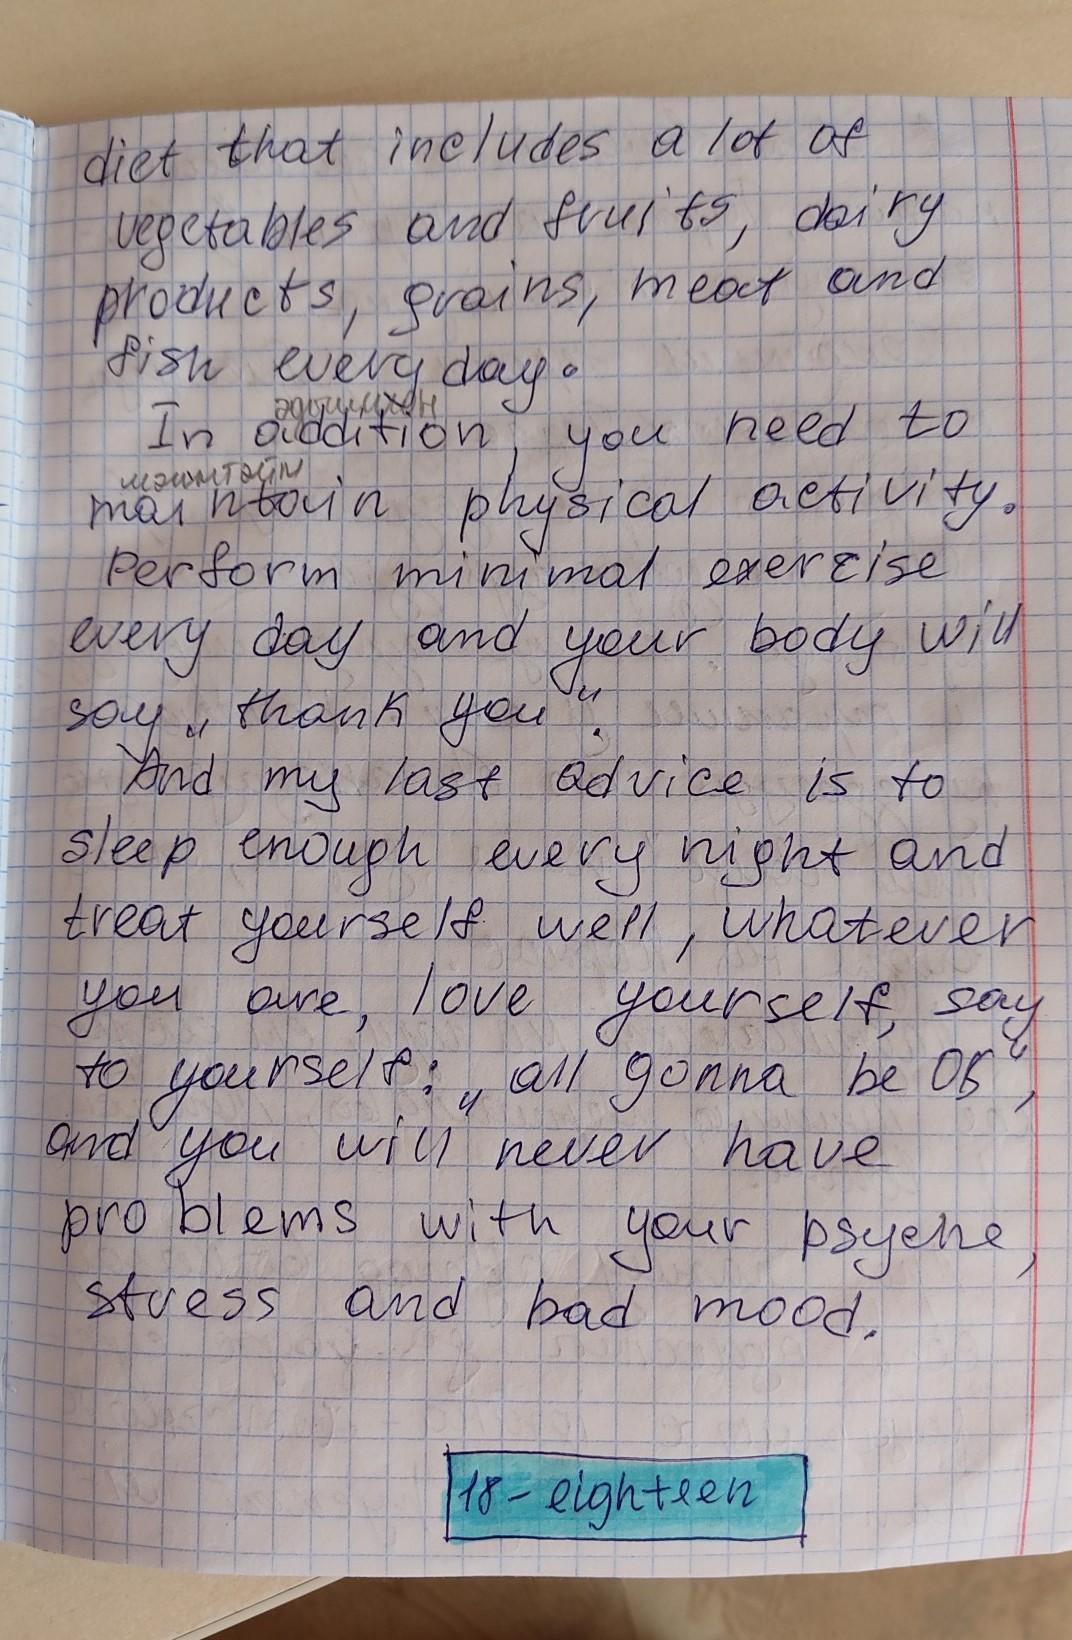 diet that includes a lot of
vegetables and fruits, dairy
products, grains, meat and
fish every day.
In addition, you need to
маинтэйн
maintain physical activity.
Perform minimal exercise
every day and your body will
say „thank you“.
And my last advice is to
sleep enough every night and
treat yourself well, whatever
you are, love yourself, say
to yourself: „all gonna be OK“,
and you will never have
problems with your psyche,
stress and bad mood.
18 - eighteen